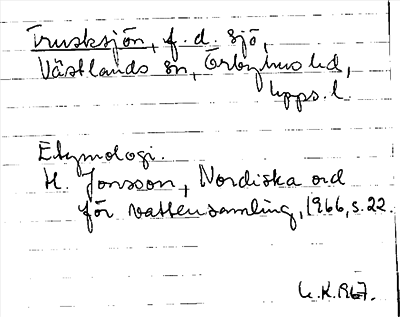 Trusksjön, f.d. sjö,
Västlands sn, Örbyhus hd,
Upps. l.
Etymologi.
H. Jonsson, Nordiska ord
för vattensamling, 1966, s. 22.
G.K. 1967.